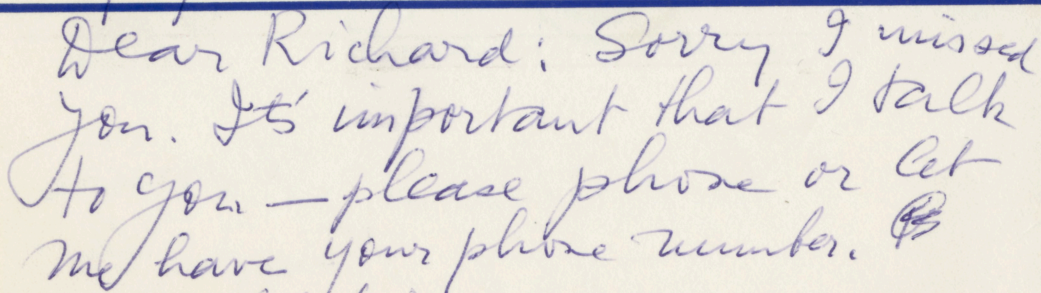 Dear Richard: Sorry I missed
you. It's important that I talk
to you — please phone or let
me have your phone number.